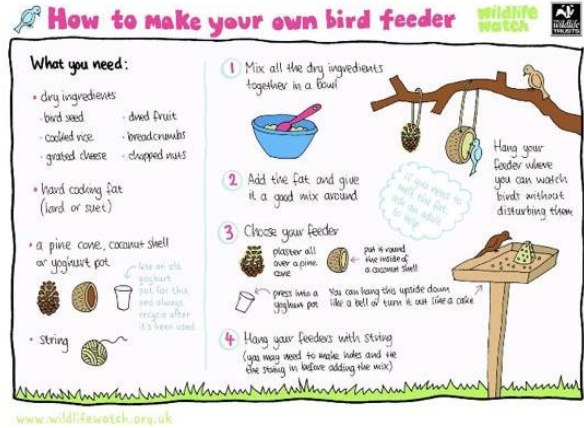 How to make your own bird feeder
wildlife watch
THE wildlife TRUSTS
What you need:
• dry ingredients
- bird seed
- cooked rice
- grated cheese
- dried fruit
- breadcrumbs
- chopped nuts
• hard cooking fat
(lard or suet)
• a pine cone, coconut shell
or yoghurt pot
Use an old
yoghurt
pot for this,
and always
recycle after
it's been used
• string
1 Mix all the dry ingredients
together in a bowl
2 Add the fat and give
it a good mix around
If you need to
melt the fat,
ask an adult
to help
3 Choose your feeder
plaster all
over a pine
cone
put it round
the inside of
a coconut shell
press into a
yoghurt pot
You can hang this upside down
like a bell or turn it out like a cake
4 Hang your feeders with string
(you may need to make holes and tie
the string in before adding the mix)
Hang your
feeder where
you can watch
birds without
disturbing them
www.wildlifewatch.org.uk